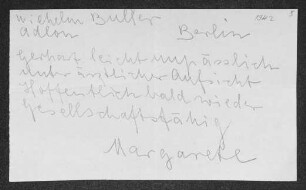 Wilhelm Buller
Adlon Berlin 1362 5
Gerhart leicht unpässlich
unter ärztlicher Aufsicht
hoffentlich bald wieder
gesellschaftsfähig
Margarete